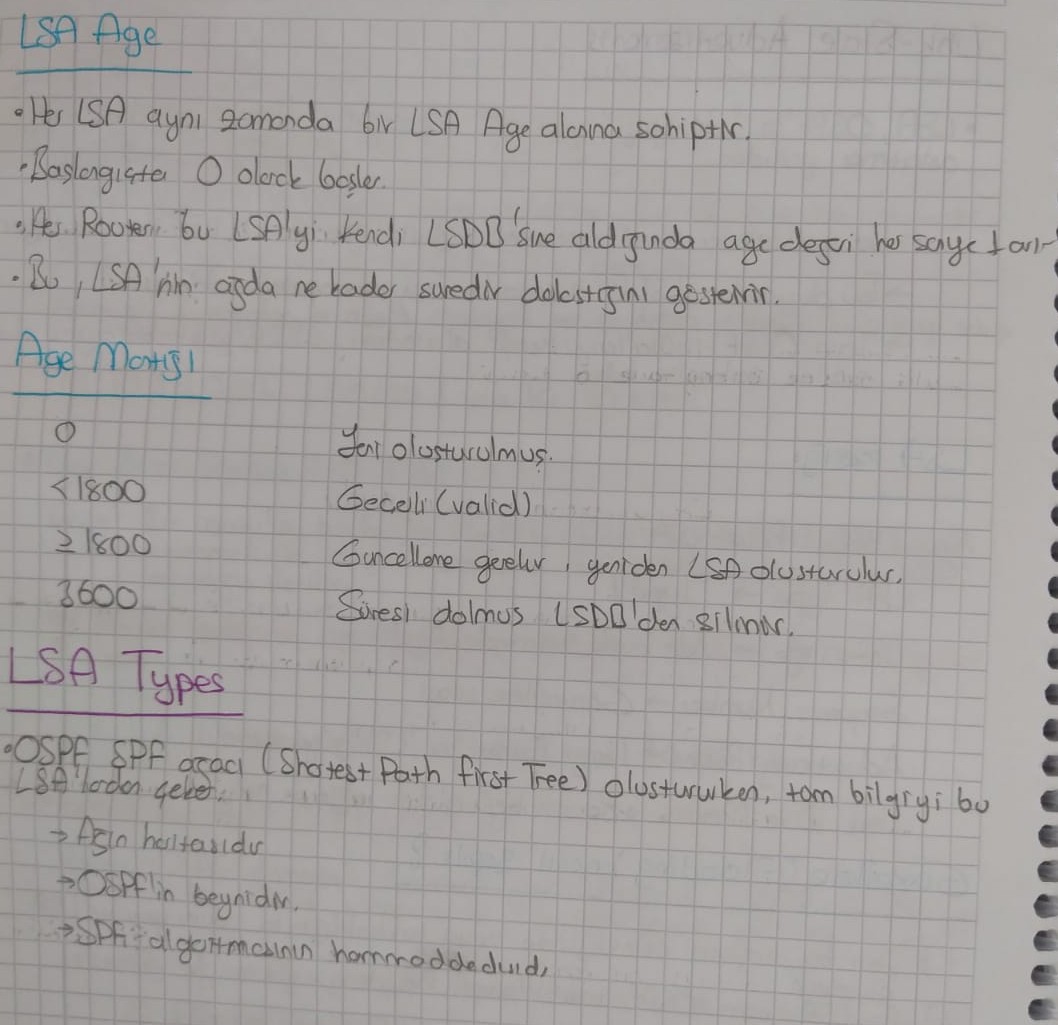 LSA Age
• Her LSA aynı zamanda bir LSA Age alanına sahiptir.
• Baslangıçta 0 olarak başlar.
• Her Router bu LSA'yi kendi LSDB'sine aldıgında age degeri her saye 1 artı-
• Bu, LSA'nin agda ne kadar suredir dolastıgını gösterir.
Age Mantıgı
0 Yeni olusturulmuş.
<1800 Gecerli (valid)
≥1800 Guncelleme gerekir, yeniden LSA olusturulur.
3600 Süresi dolmus LSDB'den silinir.
LSA Types
• OSPF SPF agacı (Shotest Path first Tree) olustururken, tam bilgiyi bu
LSA'lardan çeker.
→ Agın haritasıdır
→ OSPF'in beynidir.
→ SPF algoritmasının hammaddedir